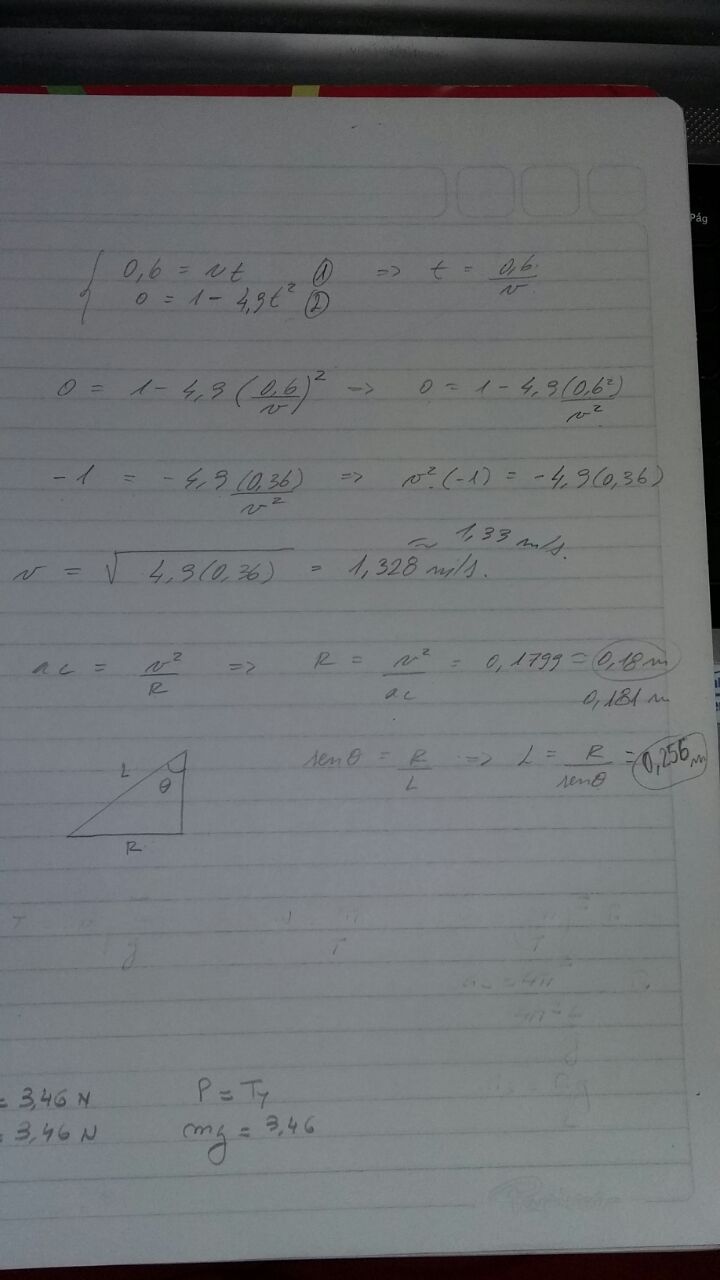 Pág
0,6 = vt ① => t = 0,6/v
0 = 1 - 4,9t² ②
0 = 1 - 4,9 (0,6/v)² => 0 = 1 - 4,9(0,6²)/v²
-1 = -4,9(0,36)/v² => v².(-1) = -4,9(0,36)
≈ 1,33 m/s.
v = √4,9(0,36) = 1,328 m/s.
ac = v²/R => R = v²/ac = 0,1799 = 0,18 m
0,181 m
senθ = R/L => L = R/senθ = 0,256 m
L
θ
R
= 3,46 N P = Ty
= 3,46 N mg = 3,46